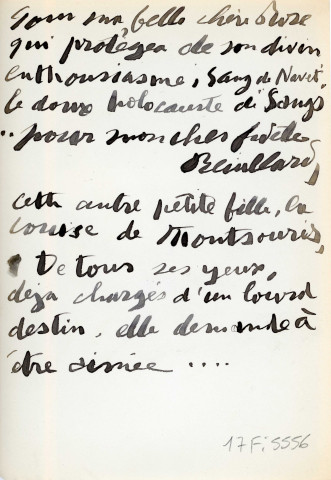 Pour ma belle chère Rose
qui protégea de son divin
enthousiasme, Sang de Navet
le doux holocauste di Sangs
.. pour mon cher fidèle
cette autre petite fille, la
de Montsouris,
De tous ses yeux,
déjà chargés d'un lourd
destin, elle demande à
être aimée ....
17Fi5556